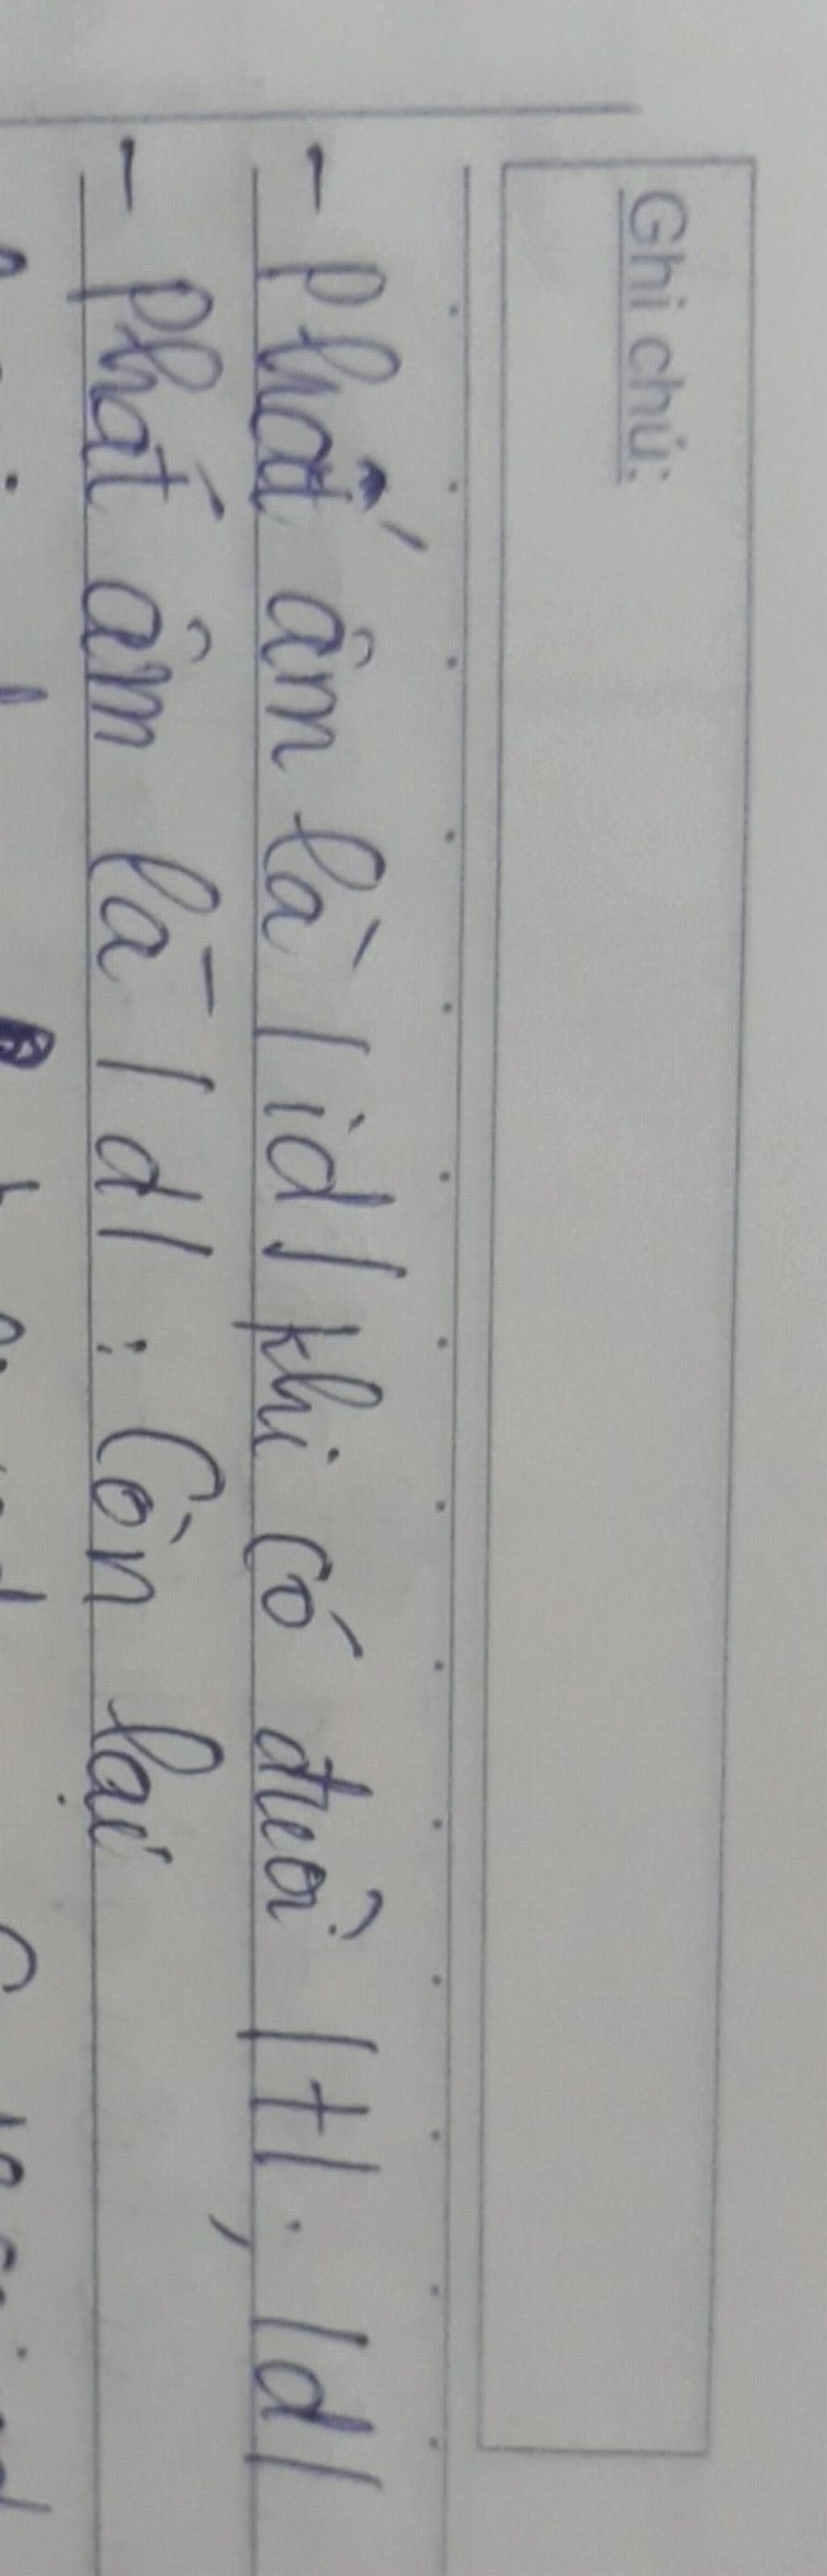 Ghi chú:
- phát âm là /id/ khi có đuôi /t/, /d/
- phát âm là /d/ : Còn lại